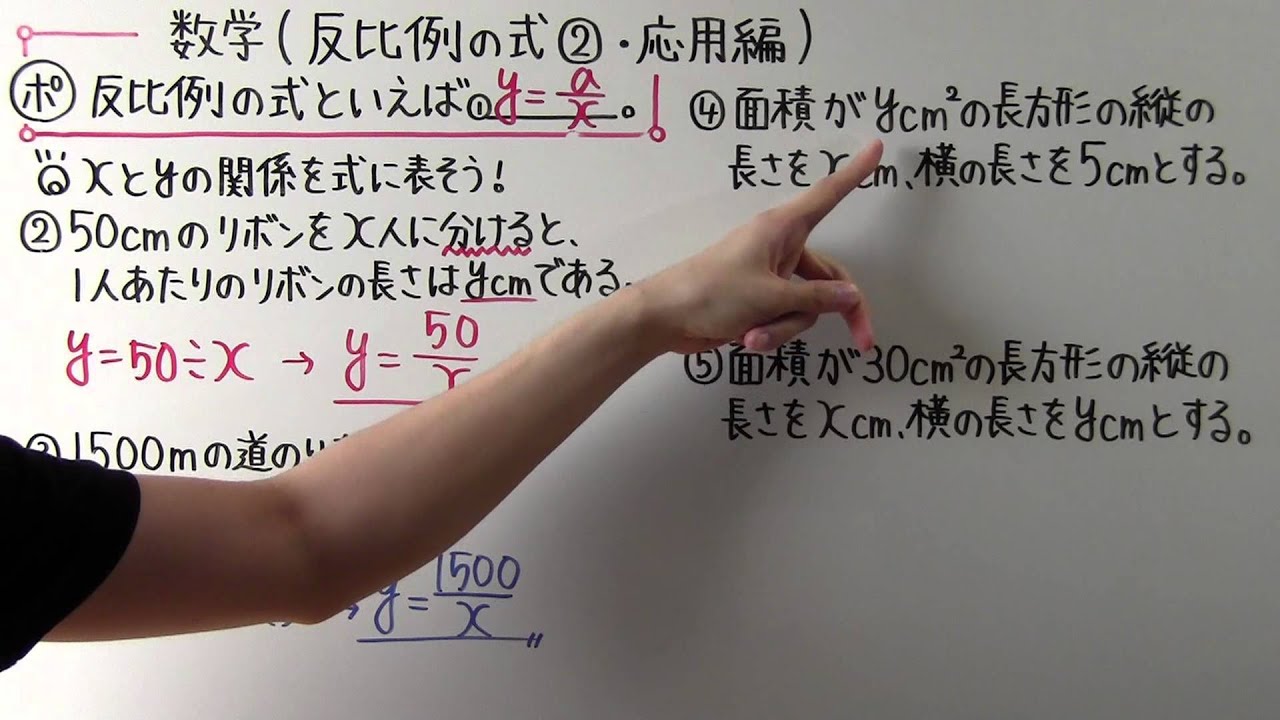 数学(反比例の式②・応用編)
ポ 反比例の式といえば① y=a/x。
xとyの関係を式に表そう!
②50cmのリボンをx人に分けると、
1人あたりのリボンの長さはycmである。
y=50÷x → y=50/x
1500mの道のり
→ y=1500/x
④面積がycm²の長方形の縦の
長さをxcm、横の長さを5cmとする。
⑤面積が30cm²の長方形の縦の
長さをxcm、横の長さをycmとする。